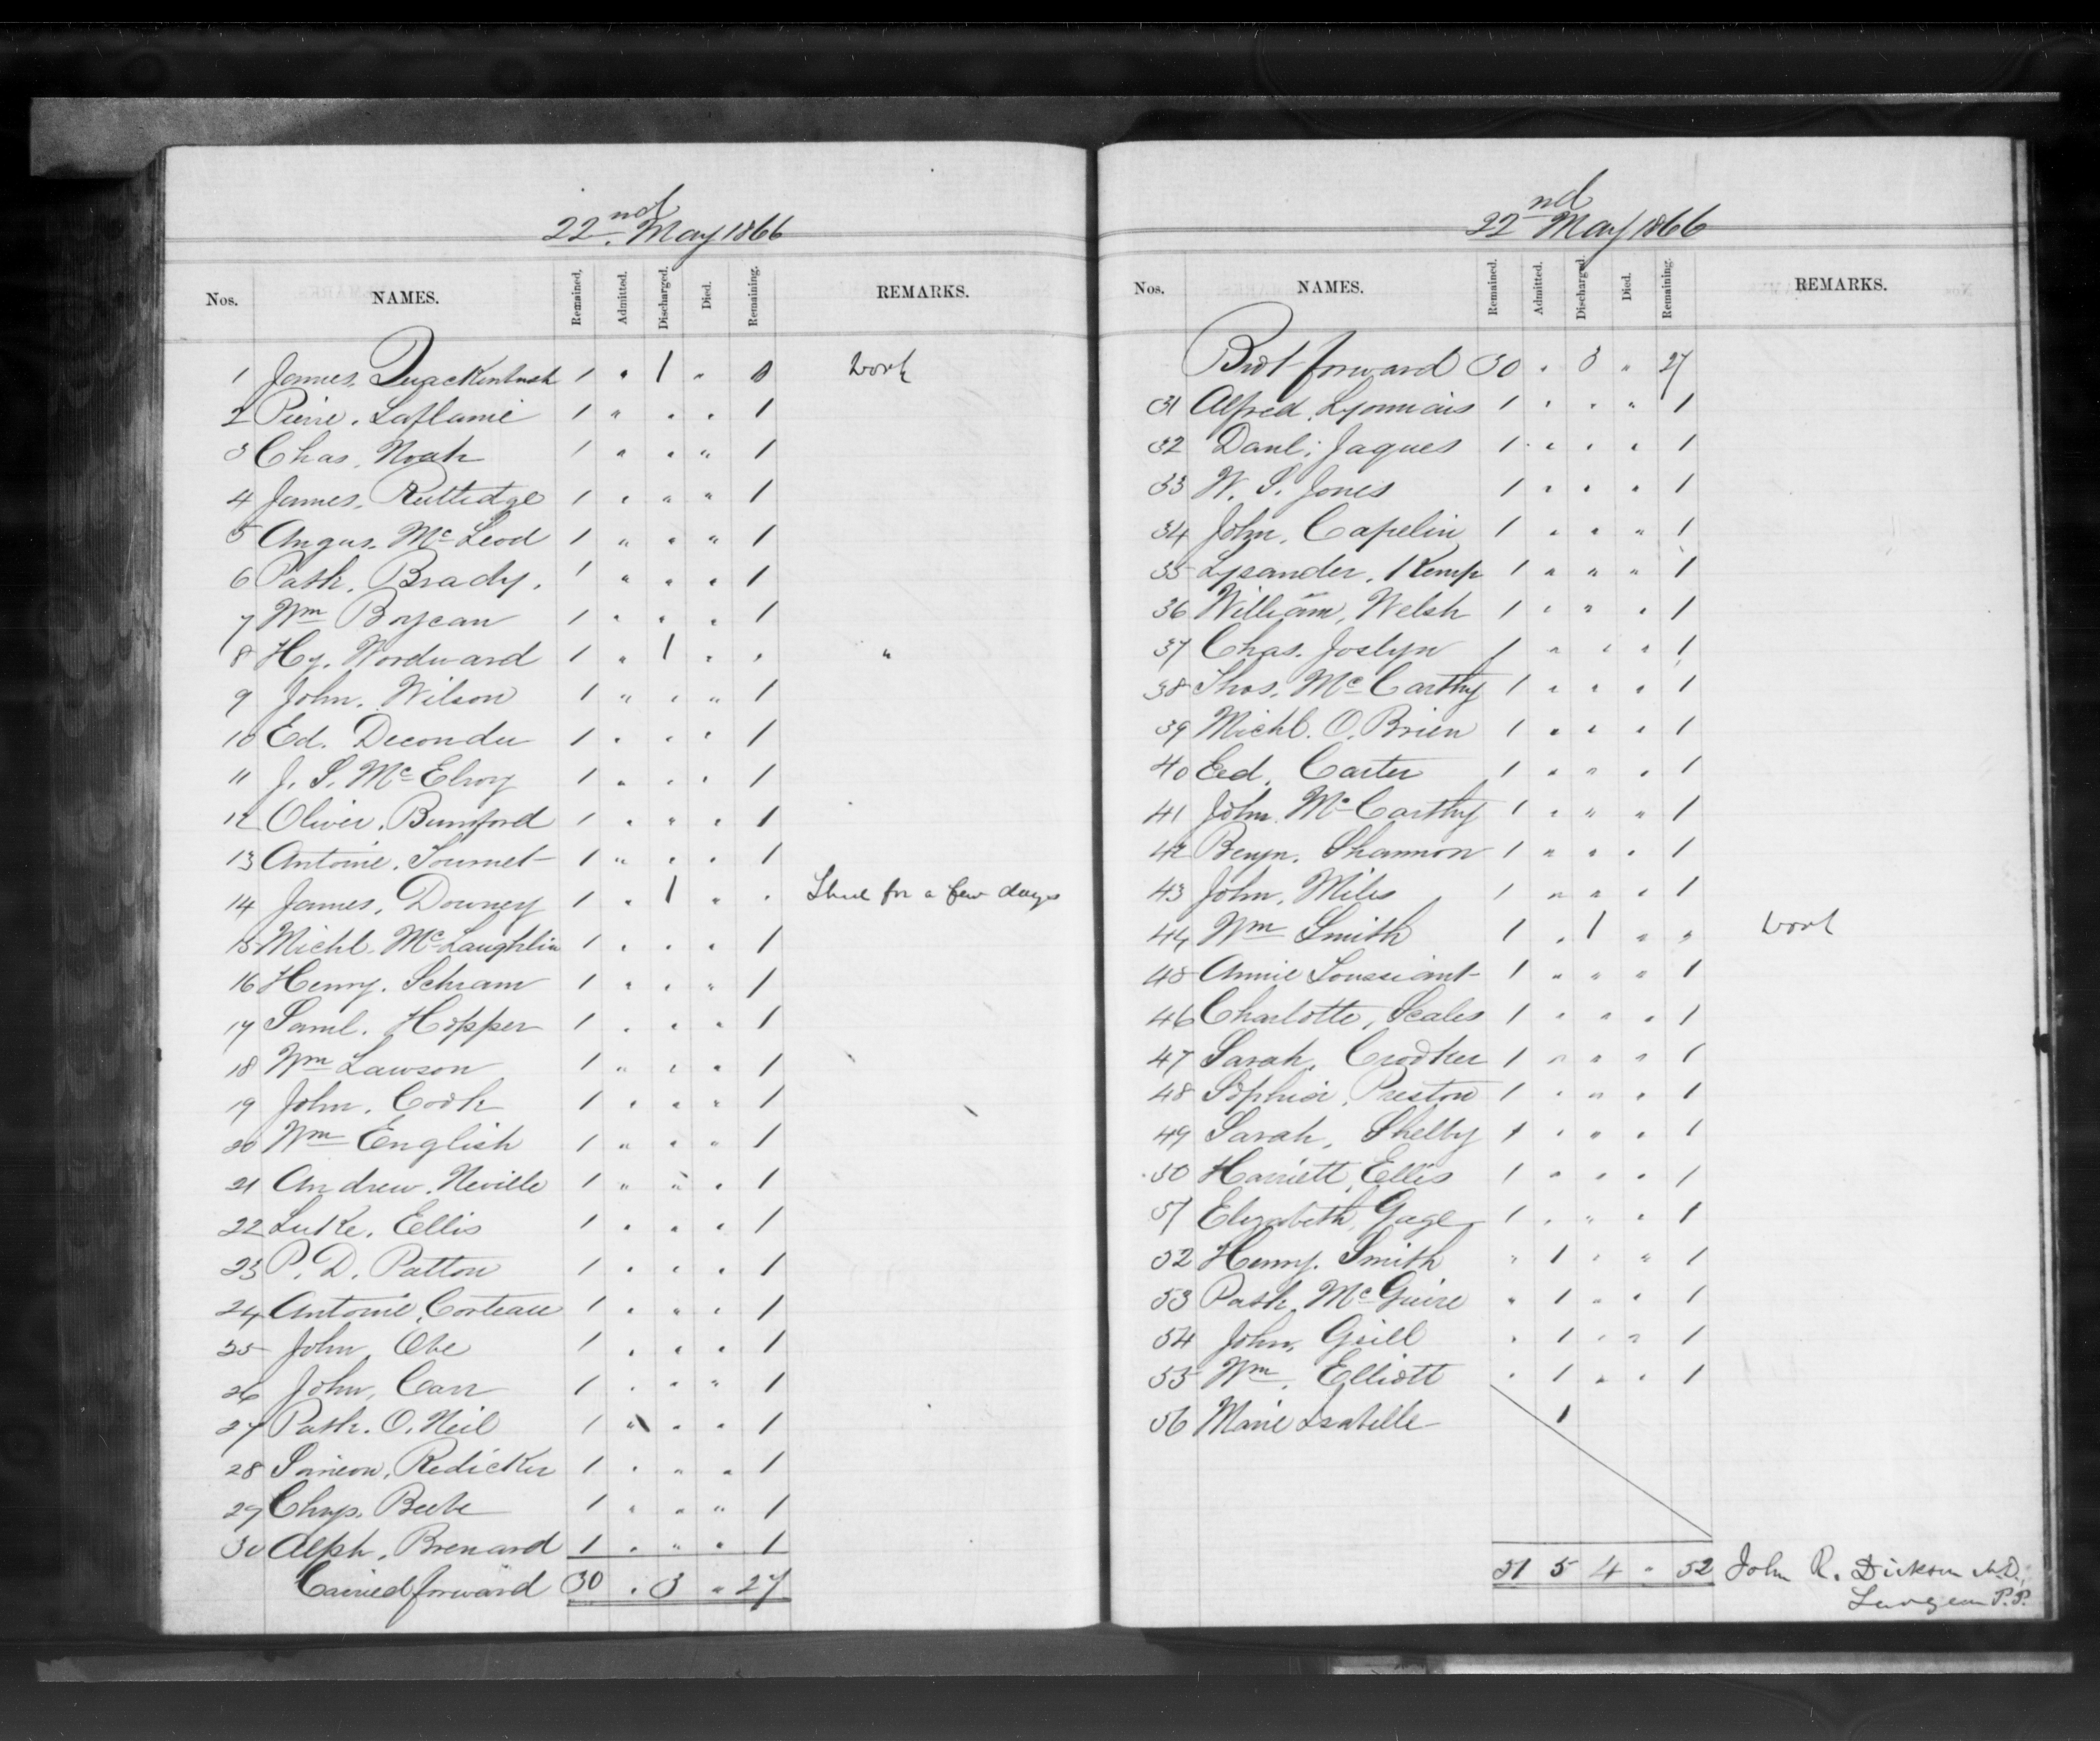 22nd. May 1866
Nos. NAMES. Remained. Admitted. Discharged. Died. Remaining. REMARKS.
1 James. Quackenbush 1 " 1 " 0 Work
2 Pierre. Laflamie 1 " " " 1
3 Chas. Noah 1 " " " 1
4 James. Rutledge 1 " " " 1
5 Angus. Mc Leod 1 " " " 1
6 Patk. Brady. 1 " " " 1
7 Wm Boycan 1 " " " 1
8 Hy. Woodward 1 " 1 " " "
9 John. Wilson 1 " " " 1
10 Ed. Decondu 1 " " " 1
11 J. S. Mc Elroy 1 " " " 1
12 Oliver. Bumford 1 " " " 1
13 Antoine. Tournet 1 " " " 1
14 James. Downey 1 " 1 " " Shed for a few days
15 Michl. Mc Laughlin 1 " " " 1
16 Henry. Schram 1 " " " 1
17 Saml. Hopper 1 " " " 1
18 Wm Lawson 1 " " " 1
19 John. Cook 1 " " " 1
20 Wm English 1 " " " 1
21 Andrew. Neville 1 " " " 1
22 Luke. Ellis 1 " " " 1
23 P. D. Patton 1 " " " 1
24 Antoine. Corteau 1 " " " 1
25 John Obe 1 " " " 1
26 John. Carr 1 " " " 1
27 Patk. O. Neil 1 " " " 1
28 Simeon. Redicker 1 " " " 1
29 Chrys. Beebe 1 " " " 1
30 Alph. Brenard 1 " " " 1
Carried forward 30 " 3 " 27
22nd May 1866
Nos. NAMES. Remained. Admitted. Discharged. Died. Remaining. REMARKS.
Brot forward 30 " 3 " 27
31 Alfred. Lyonnais 1 " " " 1
32 Danl. Jaques 1 " " " 1
33 W. S. Jones 1 " " " 1
34 John. Capelin 1 " " " 1
35 Lysander. Kemp 1 " " " 1
36 William. Welsh 1 " " " 1
37 Chas. Joslyn 1 " " " 1
38 Thos. Mc Carthy 1 " " " 1
39 Michl. O. Brien 1 " " " 1
40 Ed. Carter 1 " " " 1
41 John. Mc Carthy 1 " " " 1
42 Benjn. Shannon 1 " " " 1
43 John. Miles 1 " " " 1
44 Wm Smith 1 " 1 " " Work
45 Annie Toussiant 1 " " " 1
46 Charlotte. Scales 1 " " " 1
47 Sarah. Crooker 1 " " " 1
48 Sophia. Preston 1 " " " 1
49 Sarah. Shelby 1 " " " 1
50 Harriett. Ellis 1 " " " 1
51 Elizabeth. Gage 1 " " " 1
52 Henry. Smith " 1 " " 1
53 Patk. Mc Guire " 1 " " 1
54 John. Grill " 1 " " 1
55 Wm. Elliott " 1 " " 1
56 Marie Isabelle 1
51 5 4 " 52 John R. Dickson M.D.
Surgeon P.P.